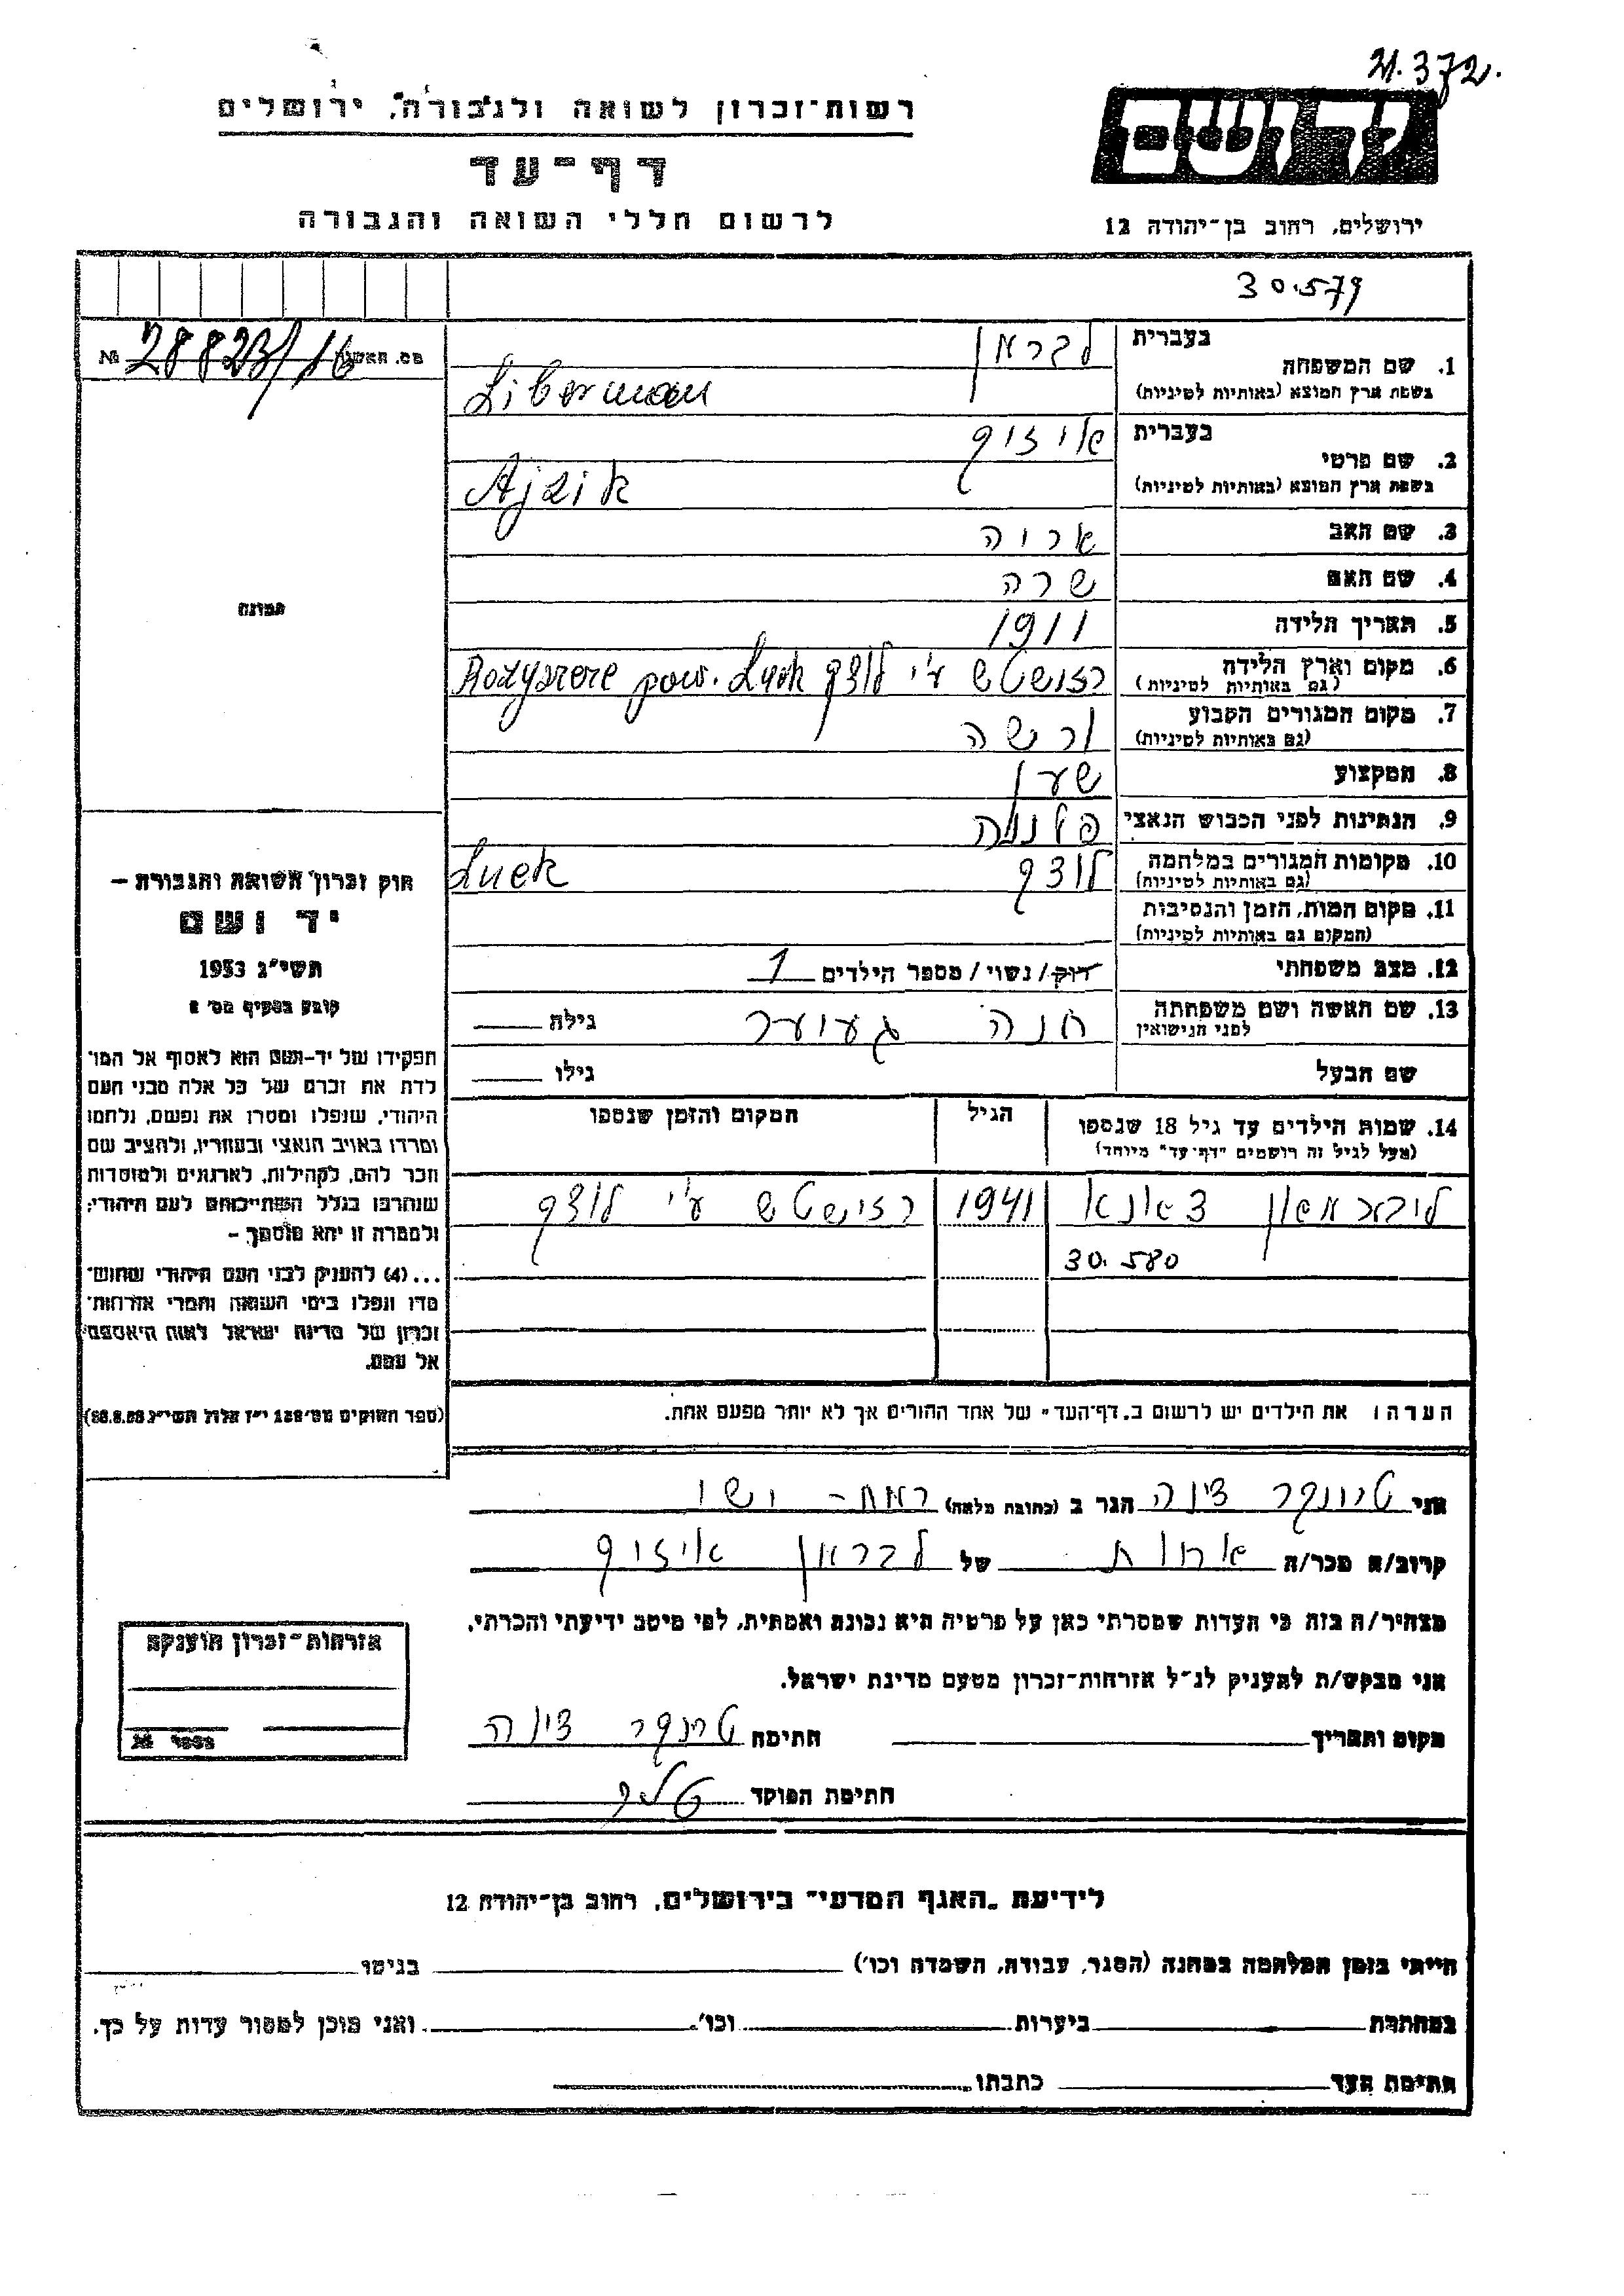 21.372.
רשות-זכרון לשואה ולגבורה, ירושלים
יד ושם
דף-עד
לרשום חללי השואה והגבורה
ירושלים, רחוב בן-יהודה 12
30.579
מס. האשה № 28823/16
1. שם המשפחה בעברית לברמן
בשפת ארץ המוצא (באותיות לטיניות) Liberman
2. שם פרטי בעברית איזיק
בשפת ארץ המוצא (באותיות לטיניות) Ajzik
3. שם האב אריה
4. שם האם שרה
5. תאריך הלידה 1911
6. מקום וארץ הלידה רזישטש ע"י לוצק pow. Łuck
(גם באותיות לטיניות)
7. מקום המגורים הקבוע ורשה
(גם באותיות לטיניות)
8. המקצוע שען
9. הנתינות לפני הכבוש הנאצי פולניה
10. מקומות המגורים במלחמה לוצק Łuck
(גם באותיות לטיניות)
11. מקום המות, הזמן והנסיבות
(המקום גם באותיות לטיניות)
12. מצב משפחתי רוק/נשוי/מספר הילדים 1
13. שם האשה ושם משפחתה חנה גילה
לפני הנישואין
שם הבעל גילו
14. שמות הילדים עד גיל 18 שנספו הגיל המקום והזמן שנספו
(מעל לגיל זה רושמים "דף-עד" מיוחד)
ליבערמאן 1941 רזישטש ע"י לוצק
30.580
הערה: את הילדים יש לרשום ב"דף-העד" של אחד ההורים אך לא יותר מפעם אחת.
תמונה
חוק זכרון השואה והגבורה –
יד ושם
תשי"ג 1953
קובע בסעיף מס' 2
תפקידו של יד-ושם הוא לאסוף אל המו־
לדת את זכרם של כל אלה מבני העם
היהודי, שנפלו ומסרו את נפשם, נלחמו
ומרדו באויב הנאצי ובעוזריו, ולהציב שם
וזכר להם, לקהילות, לארגונים ולמוסדות
שנחרבו בגלל השתייכותם לעם היהודי;
ולמטרה זו יהא מוסמך –
...(4) להעניק לבני העם היהודי שהוש־
מדו ונפלו בימי השואה והמרי אזרחות־
זכרון של מדינת ישראל לאות היאספם
אל עמם.
(ספר החוקים מס' 132 י"ז אלול תשי"ג 28.8.53)
אני צינה הגר ב (כתובת מלאה)
קרוב/ה מכר/ה אחות של לברמן איזיק
מצהיר/ה בזה כי העדות שמסרתי כאן על פרטיה היא נכונה ואמתית, לפי מיטב ידיעתי והכרתי.
אני מבקש/ת להעניק לנ"ל אזרחות-זכרון מטעם מדינת ישראל.
מקום ותאריך חתימה צינה
חתימת הפוקד
אזרחות-זכרון הוענקה
מספר №
לידיעת "האגף המדעי" בירושלים, רחוב בן-יהודה 12
הייתי בזמן המלחמה במחנה (הסגר, עבודה, השמדה וכו') בגיטו
במחתרת ביערות וכו' ואני מוכן למסור עדות על כך.
חתימת העד כתבתו